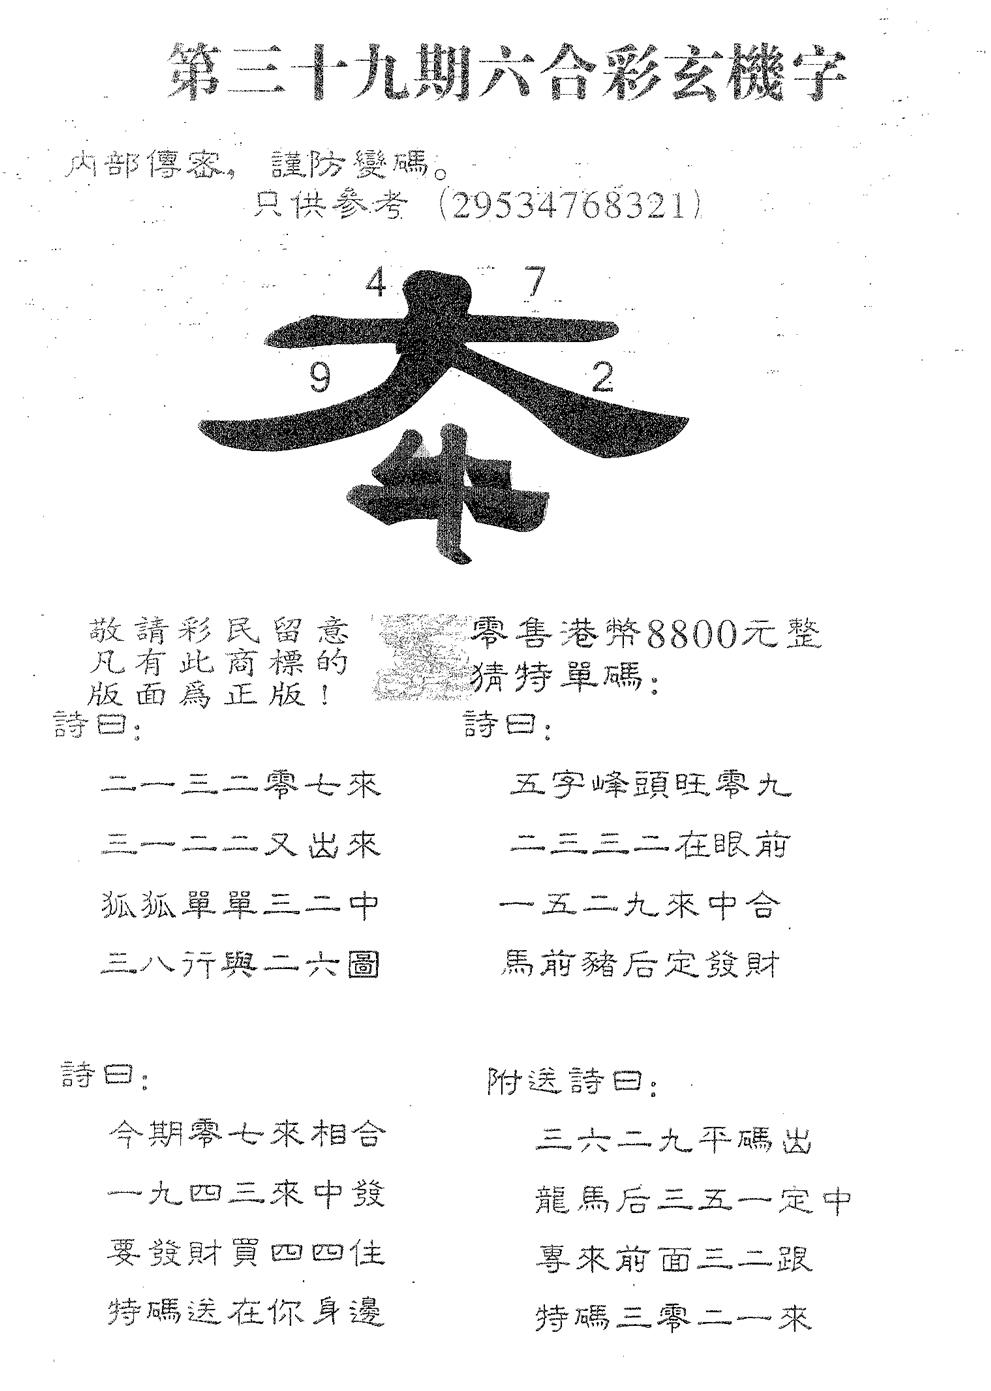 第三十九期六合彩玄機字
內部傳密，謹防變碼。
只供參考（29534768321）
4 7
9 2
敬請彩民留意
凡有此商標的
版面爲正版！
零售港幣8800元整
猜特單碼：
詩曰：
二一三二零七來
三一二二又出來
狐狐單單三二中
三八行與二六圖
詩曰：
五字峰頭旺零九
二三三二在眼前
一五二九來中合
馬前豬后定發財
詩曰：
今期零七來相合
一九四三來中發
要發財買四四住
特碼送在你身邊
附送詩曰：
三六二九平碼出
龍馬后三五一定中
專來前面三二跟
特碼三零二一來